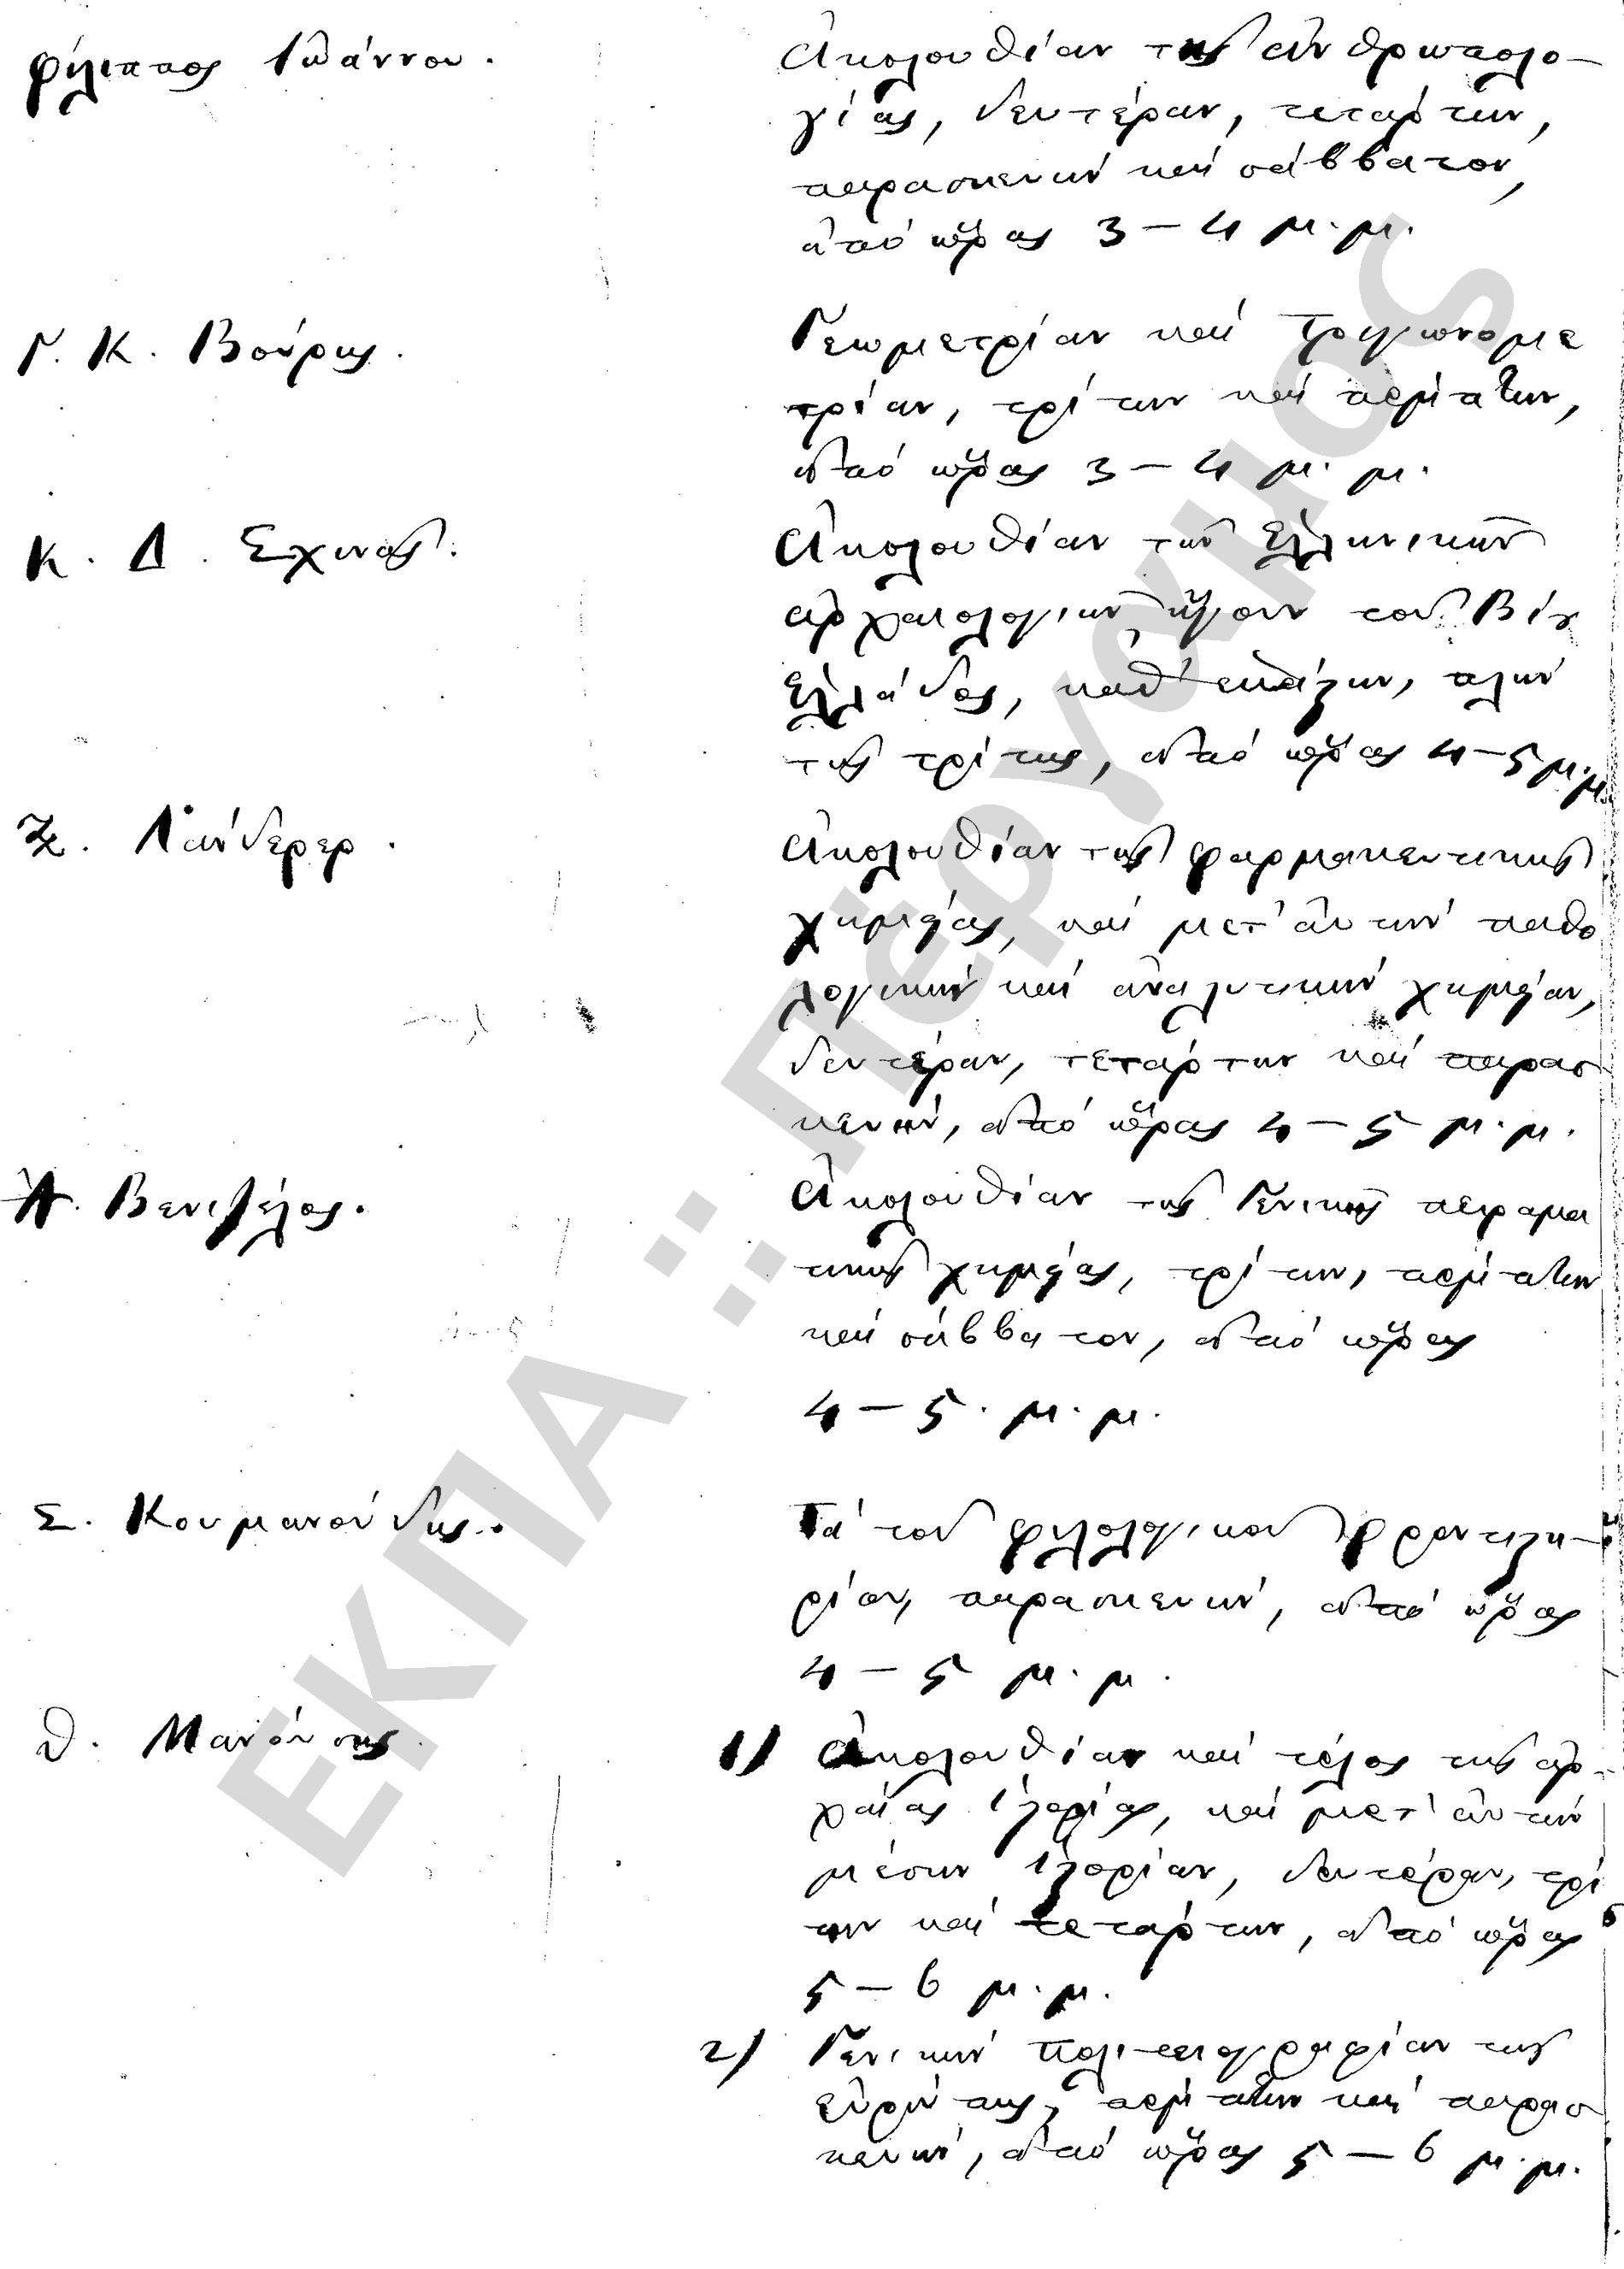 Φίλιππος Ἰωάννου.
Ἀκολουθίαν τῆς ἀνθρωπολο-
γίας, δευτέραν, τετάρτην,
παρασκευήν καί σάββατον,
ἀπό ὥρας 3 – 4 μ. μ.
Γ. Κ. Βούρης.
Γεωμετρίαν καί τριγωνομε
τρίαν, τρίτην καί πέμπτην,
ἀπό ὥρας 3 – 4 μ. μ.
Κ. Δ. Σχινᾶς.
Ἀκολουθίαν τῆς Ἑλληνικῆς
ἀρχαιολογίας ἤγουν τοῦ Βίου
Ἑλλάδος, καθ' ἑκάστην, πλήν
τῆς τρίτης, ἀπό ὥρας 4 – 5 μ. μ.
Ξ. Λάνδερερ.
Ἀκολουθίαν τῆς φαρμακευτικῆς
χημείας, καί μετ' αὐτήν παθο
λογικήν καί ἀναλυτικήν χημείαν,
δευτέραν, τετάρτην καί παρασ
κευήν, ἀπό ὥρας 4 – 5 μ. μ.
Α. Βενιζέλος.
Ἀκολουθίαν τῆς Γενικῆς πειραμα
τικῆς χημείας, τρίτην, πέμπτην
καί σάββατον, ἀπό ὥρας
4 – 5. μ. μ.
Σ. Κουμανούδης.
Τά τοῦ φιλολογικοῦ φροντιστη-
ρίου, παρασκευήν, ἀπό ὥρας
4 – 5 μ. μ.
Θ. Μανούσης.
1) Ἀκολουθίαν καί τέλος τῆς ἀρ-
χαίας ἱστορίας, καί μετ' αὐτήν
μέσην ἱστορίαν, δευτέραν, τρί
την καί τετάρτην, ἀπό ὥρας
5 – 6 μ. μ.
2) Γενικήν πολιτειογραφίαν τῆς
εὐρώπης, πέμπτην καί παρασ
κευήν, ἀπό ὥρας 5 – 6 μ. μ.
ΕΚΠΑ :: Πέργαμος